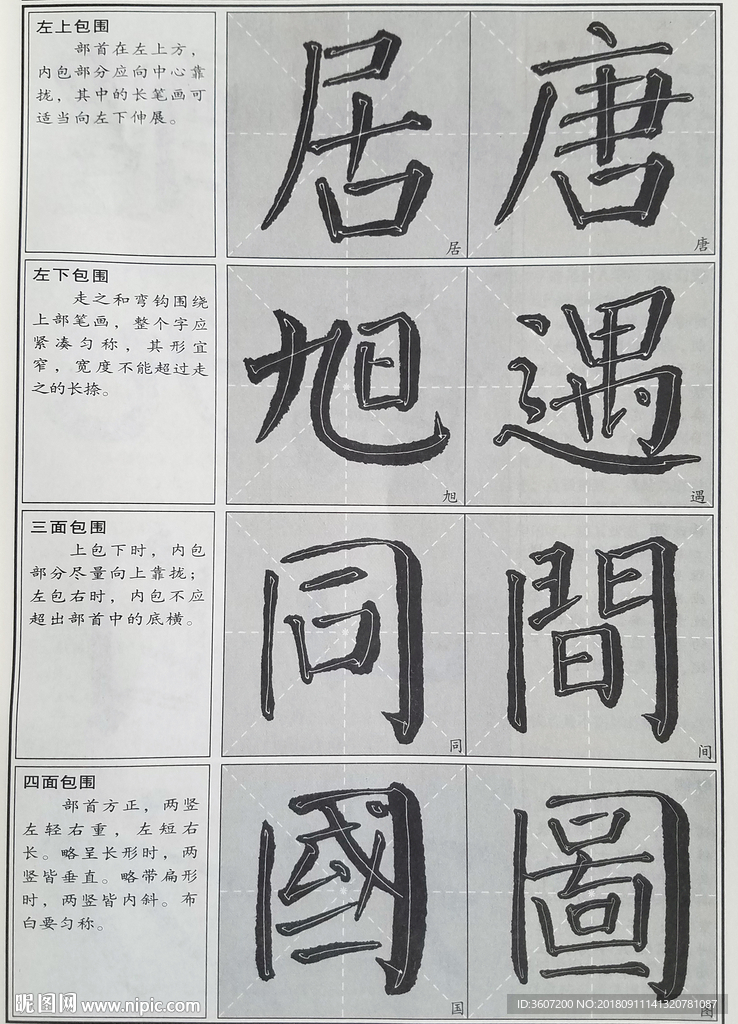 左上包围
部首在左上方，
内包部分应向中心靠
拢，其中的长笔画可
适当向左下伸展。
居
唐
居
唐
左下包围
走之和弯钩围绕
上部笔画，整个字应
紧凑匀称，其形宜
窄，宽度不能超过走
之的长捺。
旭
遇
旭
遇
三面包围
上包下时，内包
部分尽量向上靠拢；
左包右时，内包不应
超出部首中的底横。
同
間
同
间
四面包围
部首方正，两竖
左轻右重，左短右
长。略呈长形时，两
竖皆垂直。略带扁形
时，两竖皆内斜。布
白要匀称。
國
圖
国
图
昵图网 www.nipic.com
ID:3607200 NO:20180911141320781087